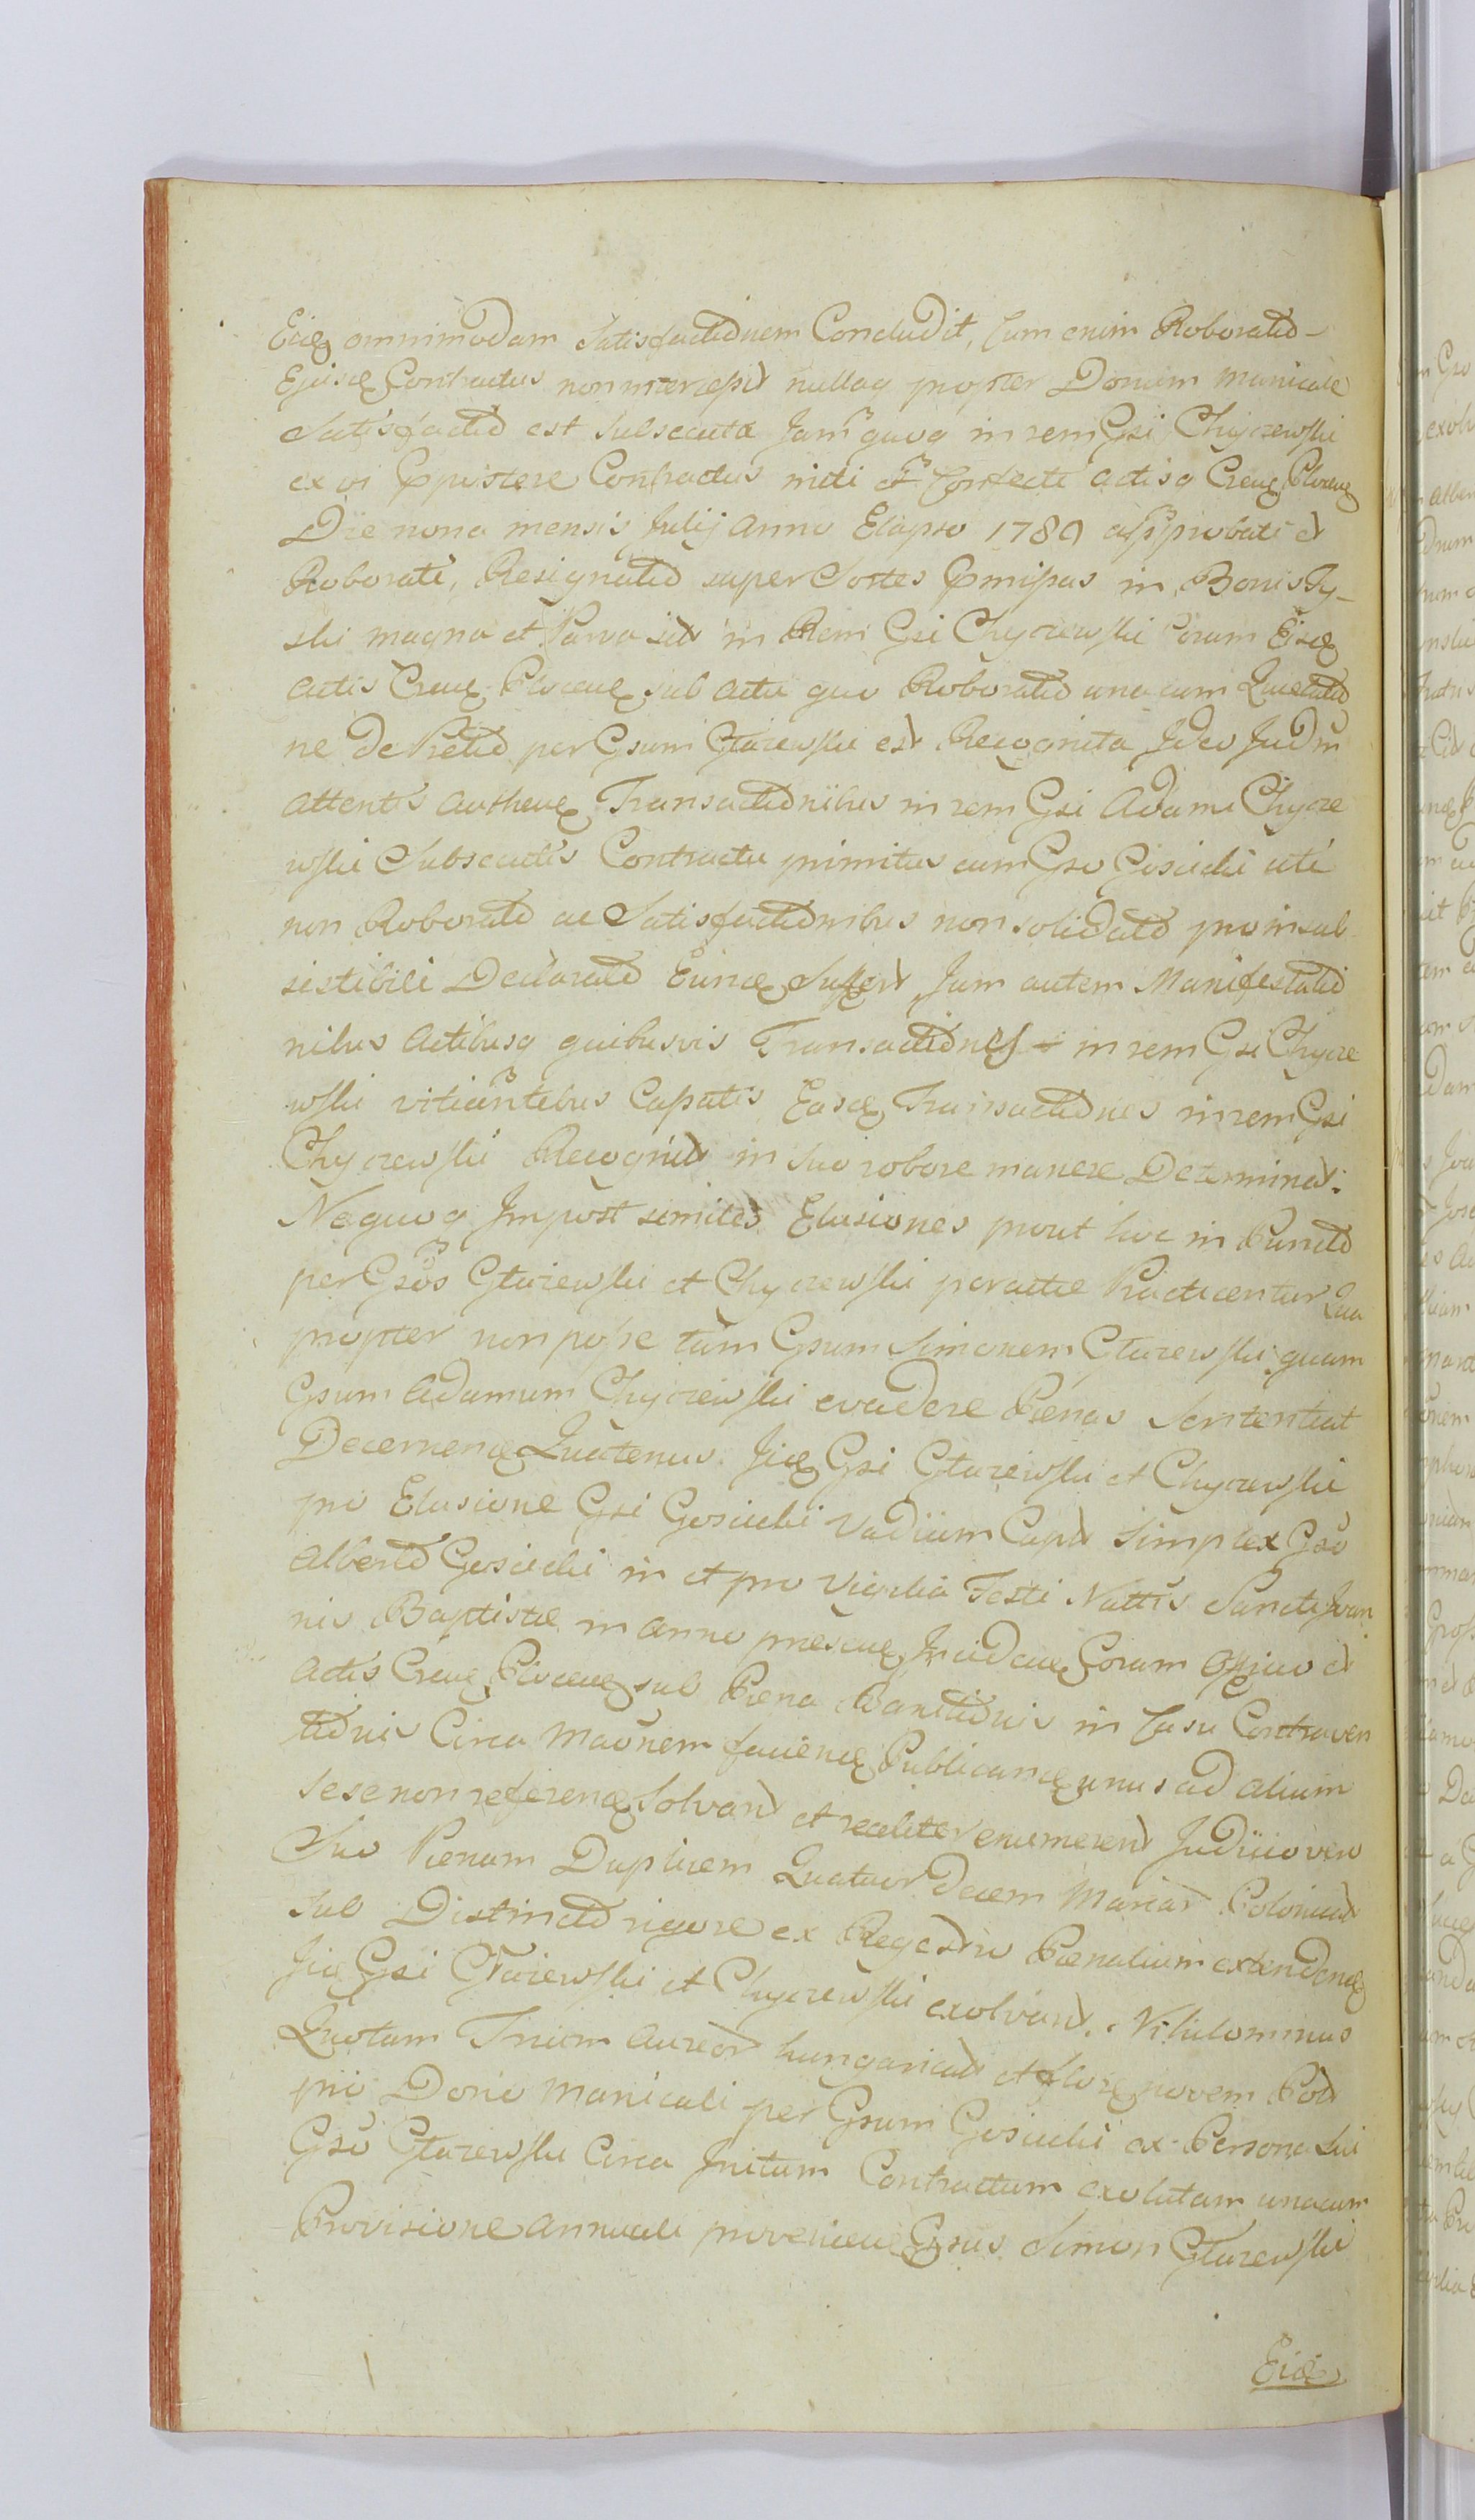 Eidꝫ omnimodam Satisfactionem Concludit, Cum enim Roboratio
Ejusdꝫ Contractus non intercessit nullaq propter Donum manicale
Satisfactio est Subsecuta Jam quoq in rem Gsi Chyczewski
ex vi Expostere Contractus initi et Confecti actisq Crens Plocens
Die nona mensis Julij Anno Elapso 1789 approbati et
Roborati, Resignatio super Sortes Omissas in Bonis Ty-
ski magna et Parva sit in Rem Gsi Chyczewski Coram Eisdꝫ
actis Crens Plocens sub actu quo Roboratio una cum Quietatio
ne de Pretio per Gsum Gturzewski est Recognita Ideo Judm
attentis Authenꝫ Transactionibus in rem Gsi Adami Chycze
wski Subsecutis Contractu primitus cum Gso Gosicki uti
non Roborato ac Satisfactionibus non solidato pro insub
sistibili Declarato Eundꝫ Suffert, Jam autem Manifestatio
nibus Actibusq quibusvis Transactiones in rem Gsi Chycze
wski vitiantibus Cassatis Easdꝫ Transactiones in rem Gsi
Chyczewski Recognit in suo robore manere Determinat.
Ne quoq Impost similes Elusiones prout hoc in Puncto
per Gsos Gturzewski et Chyczewski peractae Practicentur Qua
propter non posse tam Gsum Simonem Gturzewski quam
Gsum Adamum Chyczewski evadere Poenas Sententiat
Decernenꝫ Quatenus Iidꝫ Gsi Gturzewski et Chyczewski
pro Elusione Gsi Gosicki Vadium Capt Simplex Gso
Alberto Gosicki in et pro Vigilia Festi Nattis Sancti Joan
nis Baptistae in Anno praesenꝫ Incidenꝫ Coram Officio et
Actis Crens Plocens sub Poena Banitionis in Casu Contraven
tionis Circa Maonem facienꝫ Publicandꝫ unus ad alium
sese non referenꝫ Solvant et realiter enumerent Judicio vero
Suo Poenam Duplicem Quatuordecem Marcar Polonical
sub Distincto rigore ex Regestro Poenalium extendenꝫ
Iidꝫ Gsi Gturzewski et Chyczewski exolvant. Nihilominus
Quotam Trium Aureor hungarical et florenꝫ novem Pol
pro Dono manicali per Gsum Gosicki ex Persona Sui
Gso Gturzewski Circa Initum Contractum exolutam unacum
Provisione annuali provenienꝫ Gsus Simon Gturzewski
Eidꝫ